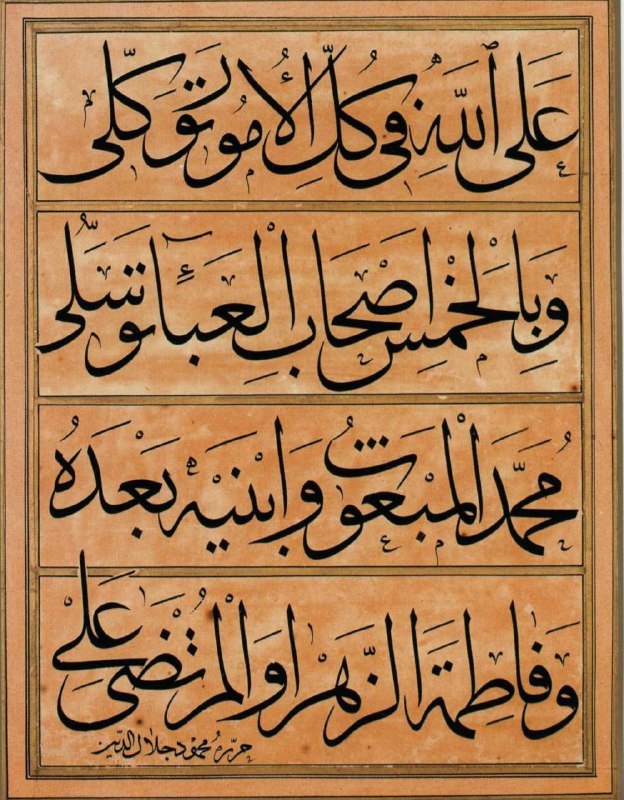 عَلَى اللّٰهِ فِي كُلِّ الْأُمُورِ تَوَكُّلِي
وَبِالْخَمْسِ اَصْحَابِ الْعَبَاءِ تَوَسُّلِي
مُحَمَّدِ الْمَبْعُوثِ وَابْنَيْهِ بَعْدَهُ
وَفَاطِمَةَ الزَّهْرَا وَالْمُرْتَضٰى عَلِي
حرره محمود جلال الدين